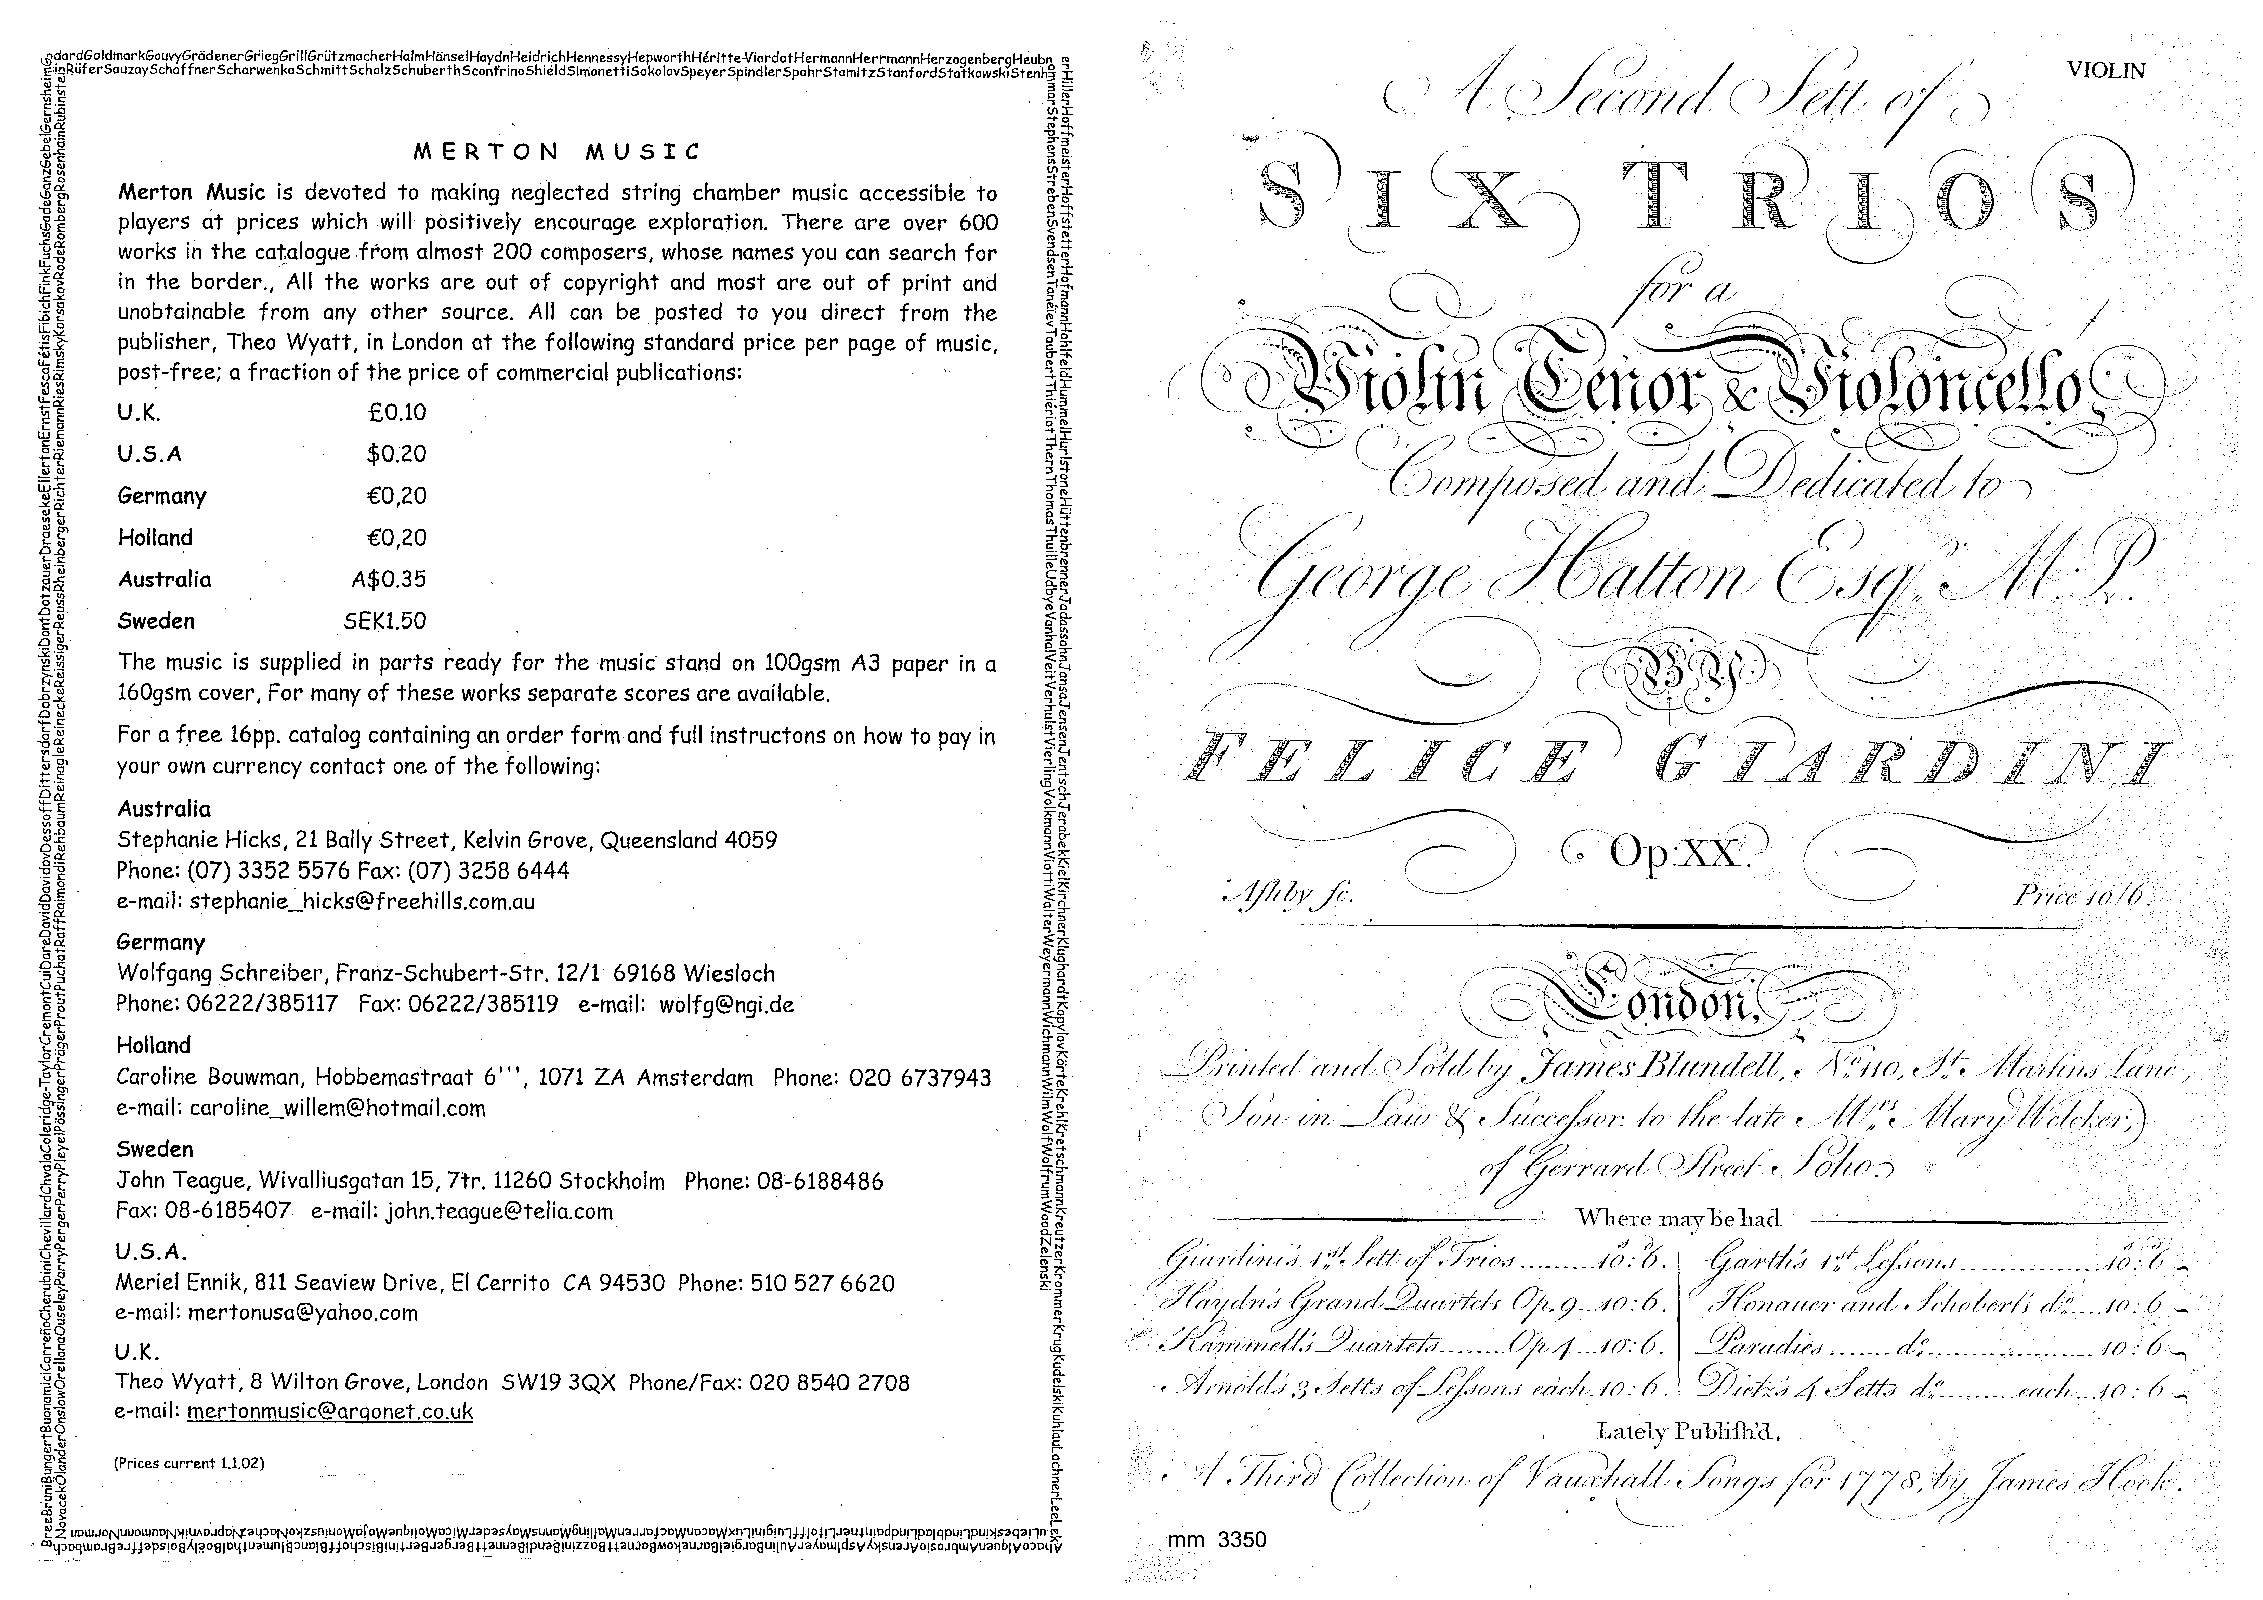 MERTON MUSIC
Merton Music is devoted to making neglected string chamber music accessible to
players at prices which will positively encourage exploration. There are over 600
works in the catalogue from almost 200 composers, whose names you can search for
in the border., All the works are out of copyright and most are out of print and
unobtainable from any other source. All can be posted to you direct from the
publisher, Theo Wyatt, in London at the following standard price per page of music,
post-free; a fraction of the price of commercial publications:
U.K. £0.10
U.S.A $0.20
Germany €0,20
Holland €0,20
Australia A$0.35
Sweden SEK1.50
The music is supplied in parts ready for the music stand on 100gsm A3 paper in a
160gsm cover, For many of these works separate scores are available.
For a free 16pp. catalog containing an order form and full instructons on how to pay in
your own currency contact one of the following:
Australia
Stephanie Hicks, 21 Bally Street, Kelvin Grove, Queensland 4059
Phone: (07) 3352 5576 Fax: (07) 3258 6444
e-mail: stephanie_hicks@freehills.com.au
Germany
Wolfgang Schreiber, Franz-Schubert-Str. 12/1 69168 Wiesloch
Phone: 06222/385117 Fax: 06222/385119 e-mail: wolfg@ngi.de
Holland
Caroline Bouwman, Hobbemastraat 6''', 1071 ZA Amsterdam Phone: 020 6737943
e-mail: caroline_willem@hotmail.com
Sweden
John Teague, Wivalliusgatan 15, 7tr. 11260 Stockholm Phone: 08-6188486
Fax: 08-6185407 e-mail: john.teague@telia.com
U.S.A.
Meriel Ennik, 811 Seaview Drive, El Cerrito CA 94530 Phone: 510 527 6620
e-mail: mertonusa@yahoo.com
U.K.
Theo Wyatt, 8 Wilton Grove, London SW19 3QX Phone/Fax: 020 8540 2708
e-mail: mertonmusic@argonet.co.uk
(Prices current 1.1.02)
VIOLIN
A Second Sett of
SIX TRIOS
for a
Violin Tenor & Violoncello,
Composed and Dedicated to
George Hatton Esqr. M.P.
BY
FELICE GIARDINI
Op: XX.
Ashby sc. Price 10/6
London,
Printed and Sold by James Blundell, No. 110, St. Martins Lane,
Son in Law & Successor to the late Mrs. Mary Welcker,
of Gerrard Street Soho
Where may be had
Giardini's 1st. Sett of Trios 10:6. Garth's 1st Lessons 10:6
Haydn's Grand Quartets Op. 9 10:6. Honauer and Schobert's do. 10:6
Kammell's Quartets Op 4 10:6. Paradies do. 10:6
Arnold's 3 Setts of Lessons each 10:6. Dietz's 4 Setts do. each 10:6
Lately Publish'd,
A Third Collection of Vauxhall Songs for 1778, by James Hook.
mm 3350